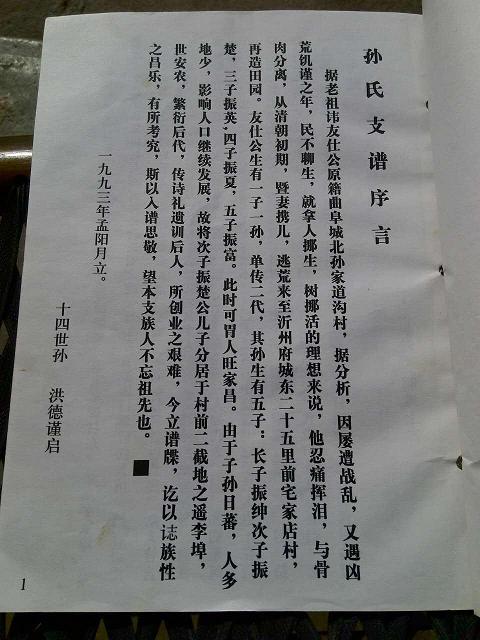 孙氏支谱序言
据老祖讳友仕公原籍曲阜城北孙家道沟村，据分析，因屡遭战乱，又遇凶
荒饥谨之年，民不聊生，就拿人挪生，树挪活的理想来说，他忍痛挥泪，与骨
肉分离，从清朝初期，暨妻携儿，逃荒来至沂州府城东二十五里前宅家店村，
再造田园。友仕公生有一子一孙，单传二代，其孙生有五子：长子振绅次子振
楚，三子振英，四子振夏，五子振富。此时可胃人旺家昌。由于子孙日蕃，人多
地少，影响人口继续发展，故将次子振楚公儿子分居于村前二截地之遥李埠，
世安农，繁衍后代，传诗礼遗训后人，所创业之艰难，今立谱牒，讫以志族性
之昌乐，有所考究，斯以入谱思敬，望本支族人不忘祖先也。
一九九三年孟阳月立。
十四世孙 洪德谨启
1